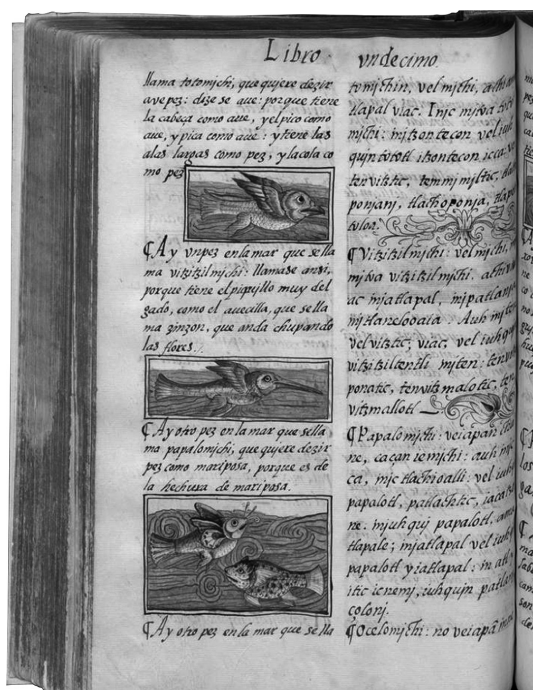 Libro undecimo
llama totomichi, que quiere dezir
ave pez: dize se aue: porque tiene
la cabeça como aue, y el pico como
aue, y pica como aue: y tiene las
alas largas como pez, y la cola co
mo pez
¶ Ay vn pez en la mar que se lla
ma vitzitzilmichi: llamase ansi,
porque tiene el piquillo muy del
gado, como el avecilla, que se lla
ma zinzon, que anda chupando
las flores.
¶ Ay otro pez en la mar que se lla
ma papalomichi, que quiere dezir
pez como mariposa, porque es de
la hechura de mariposa.
¶ Ay otro pez en la mar que se lla
tomichin, vel michi,
tlapal viac. Injc mitoa
michi: mitzontecon vel iuh
qujn tototl itzontecon
tenvitztic, temmimiltic,
ponjanj, tlachoponja,
toloa.
¶ Vitzitzilmichi: vel michi,
mitoa vitzitzilmichi.
ac miatlapal, mipatlanja
mitlaneloaia. Auh
vel vitztic, viac, vel iuhquj
vitzitziltentli miten:
ponatic, tenvitzmalotic,
vitzmallotl
¶ Papalomichi: veiapan
ne, caçan ie michi: auh
ca, mic tlachioalli: vel
papalotl, patlachtic,
ne: miuhquj papalotl
tlapale; miatlapal vel iuhquj
papalotl yiatlapal: in atl
itic icnemj, iuhqujn
colonj.
¶ Ocelomichi: no veiapan